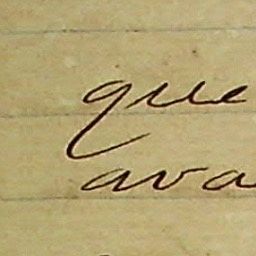 que
ava